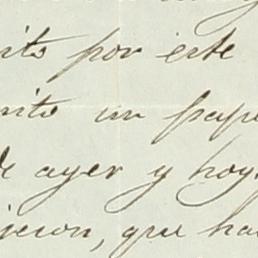 ito por este
nito un pape
de ayer y hoy
jeron, que ha